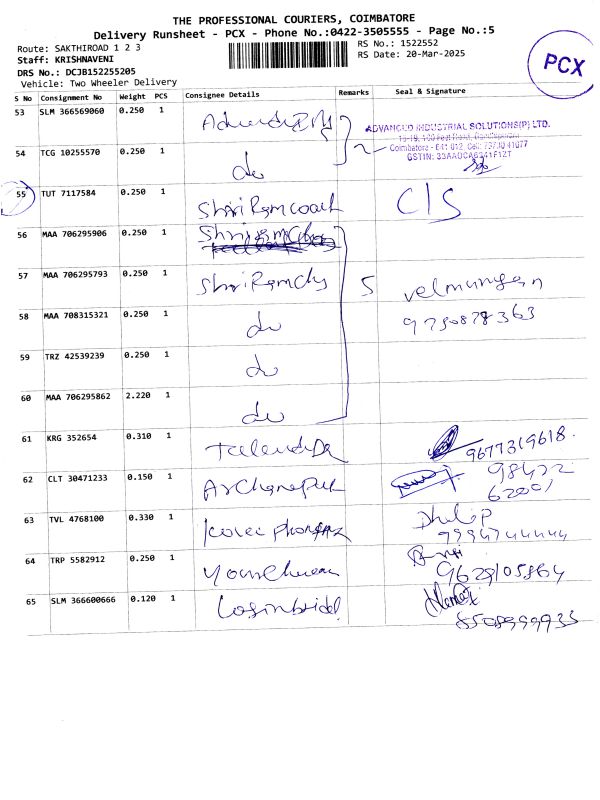 THE PROFESSIONAL COURIERS, COIMBATORE
Delivery Runsheet - PCX - Phone No.:0422-3505555 - Page No.:5
Route: SAKTHIROAD 1 2 3
RS No.: 1522552
Staff: KRISHNAVENI
RS Date: 20-Mar-2025
DRS No.: DCJB152255205
Vehicle: Two Wheeler Delivery
PCX
S No Consignment No Weight PCS Consignee Details Remarks Seal & Signature
53 SLM 366569060 0.250 1
ADVANCED INDUSTRIAL SOLUTIONS(P) LTD.
54 TCG 10255570 0.250 1 do 2
55 TUT 7117584 0.250 1 Shri Ram coach C/S
56 MAA 706295906 0.250 1
57 MAA 706295793 0.250 1 Shri Ram Chs 5 velmurugan
58 MAA 708315321 0.250 1 do 9750878363
59 TRZ 42539239 0.250 1 do
60 MAA 706295862 2.220 1 do
61 KRG 352654 0.310 1 9677319618.
62 CLT 30471233 0.150 1 98422
62001
63 TVL 4768100 0.330 1 Dhilip
9994744444
64 TRP 5582912 0.250 1
9629105864
65 SLM 366600666 0.120 1
8508999933